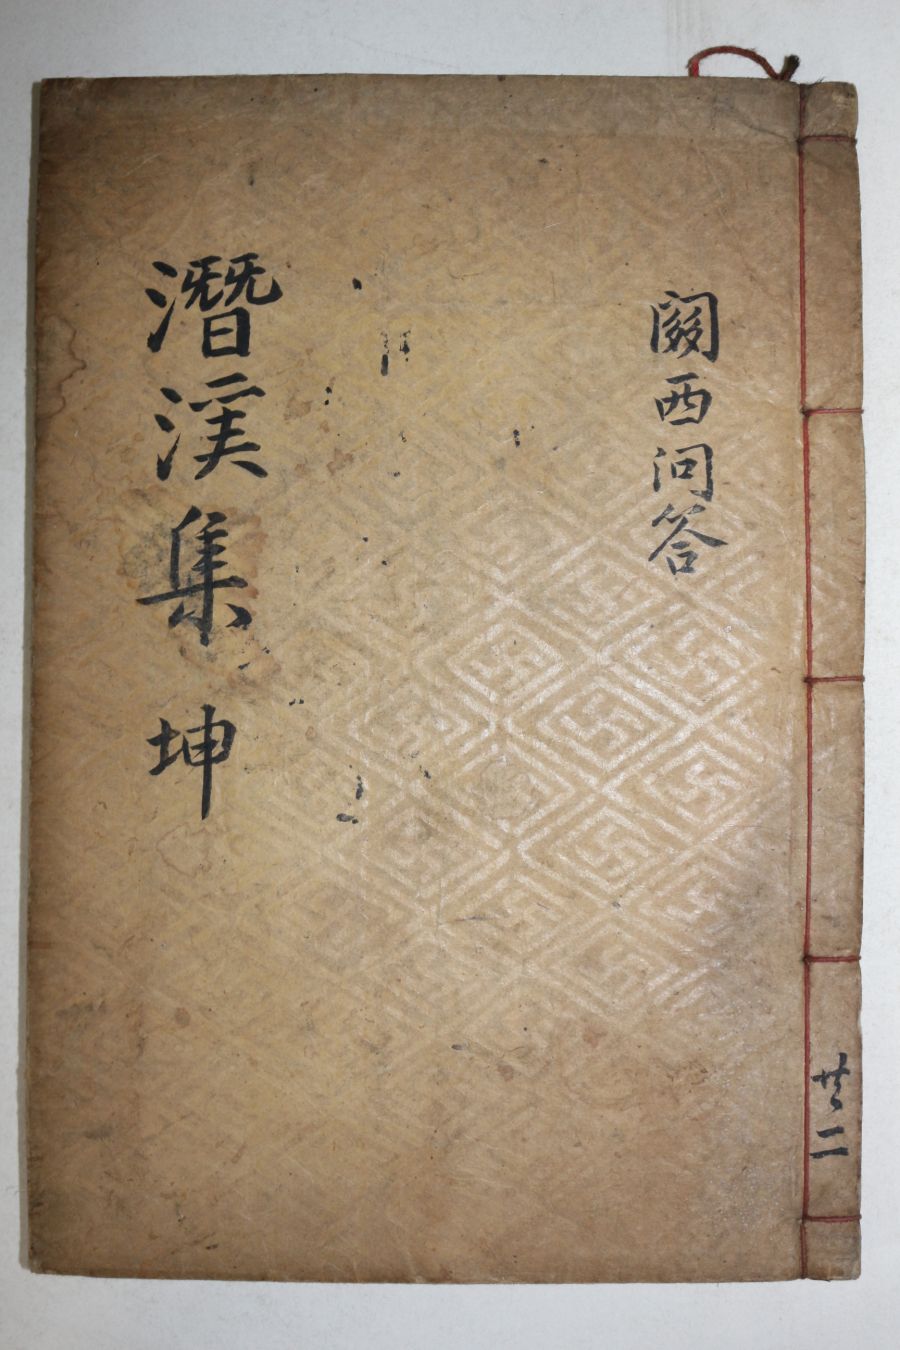 共二
關西問答
潛溪集 坤